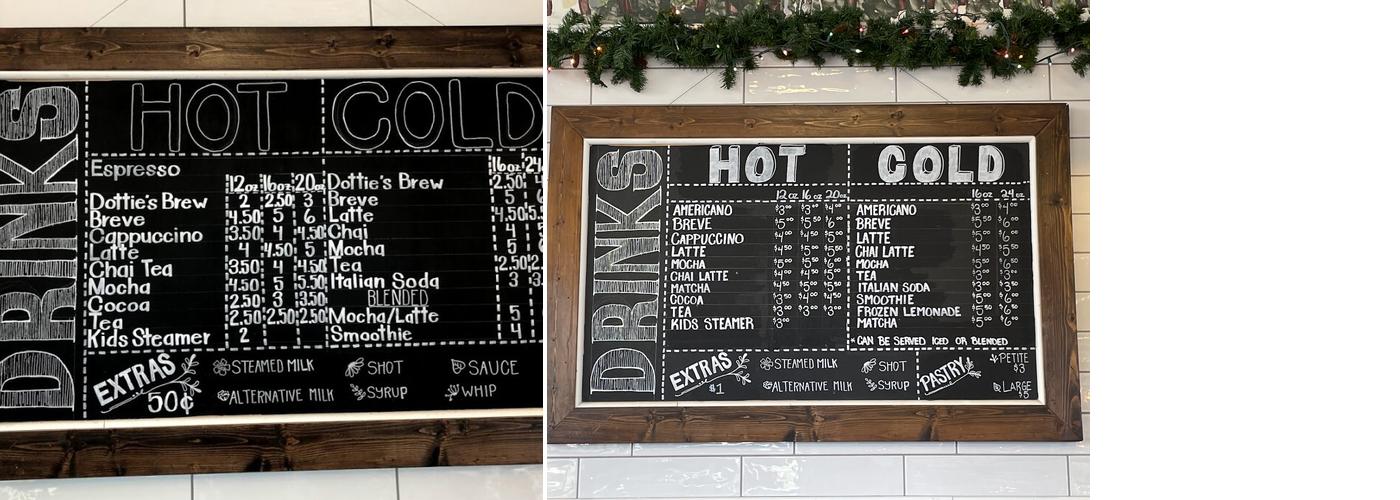 DRINKS
HOT
COLD
Espresso
12oz 16oz 20oz
Dottie's Brew 2 2.50 3
Breve 4.50 5 6
Cappuccino 3.50 4 4.50
Latte 4 4.50 5
Chai Tea 3.50 4 4.50
Mocha 4.50 5 5.50
Cocoa 2.50 3 3.50
Tea 2.50 2.50 2.50
Kids Steamer 2
16oz 24
Dottie's Brew 2.50
Breve 5
Latte 4.50
Chai 4
Mocha 5
Tea 2.50
Italian Soda 3
BLENDED
Mocha/Latte 5
Smoothie 4
EXTRAS
50¢
STEAMED MILK SHOT SAUCE
ALTERNATIVE MILK SYRUP WHIP
DRINKS
HOT
COLD
12oz 16oz 20oz
AMERICANO $3.00 $3.50 $4.00
BREVE $5.00 $5.50 $6.00
CAPPUCCINO
LATTE $4.50 $5.00 $5.50
MOCHA $5.00 $5.50 $6.00
CHAI LATTE
MATCHA
COCOA $3.50 $4.00 $4.50
TEA $3.00 $3.00 $3.00
KIDS STEAMER $3.00
16oz 24oz
AMERICANO
BREVE
LATTE
CHAI LATTE
MOCHA
TEA
ITALIAN SODA
SMOOTHIE
FROZEN LEMONADE
MATCHA
* CAN BE SERVED ICED OR BLENDED
EXTRAS
$1
STEAMED MILK SHOT
ALTERNATIVE MILK SYRUP
PASTRY
PETITE
$3
LARGE
$5